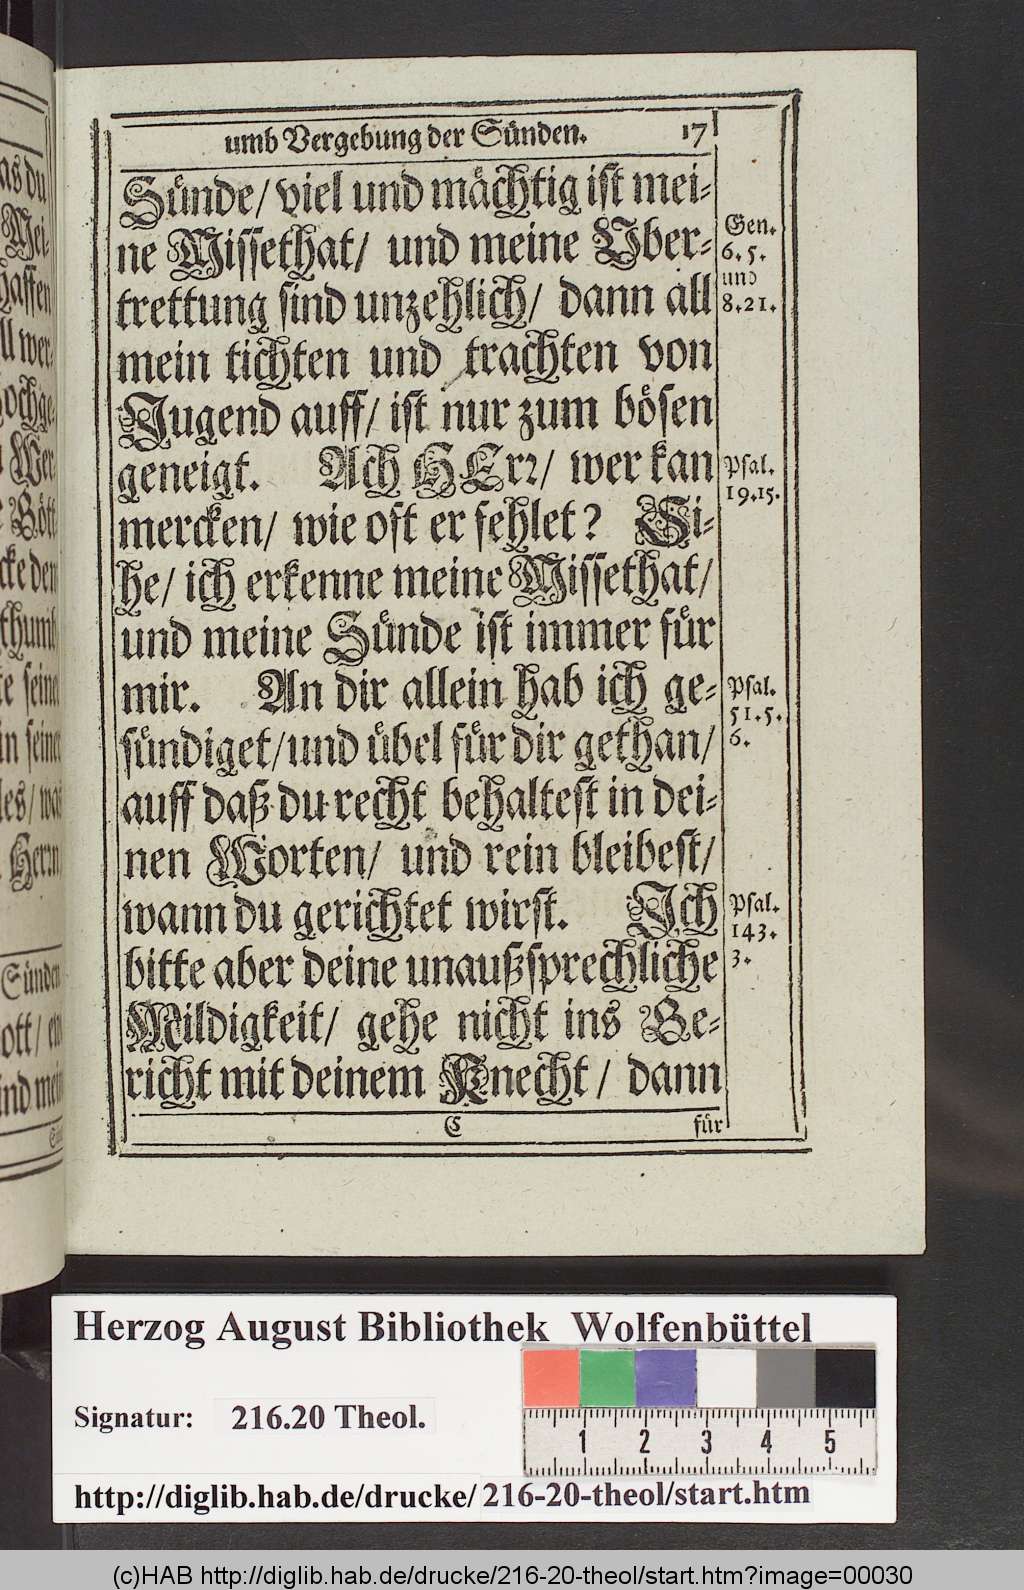 umb Vergebung der Sünden. 17
Sünde/ viel und mächtig ist mei-
ne Missethat/ und meine Uber-
trettung sind unzehlich/ dann all
mein tichten und trachten von
Jugend auff/ ist nur zum bösen
geneigt. Ach HErr/ wer kan
mercken/ wie oft er fehlet? Si-
he/ ich erkenne meine Missethat/
und meine Sünde ist immer für
mir. An dir allein hab ich ge-
sündiget/ und übel für dir gethan/
auff daß du recht behaltest in dei-
nen Worten/ und rein bleibest/
wann du gerichtet wirst. Ich
bitte aber deine unaußsprechliche
Mildigkeit/ gehe nicht ins Ge-
richt mit deinem Knecht/ dann
C für
Gen.
6. 5.
und
8. 21.
Psal.
19. 15.
Psal.
51. 5.
6.
Psal.
143.
3.
as du
Mei-
haffen
ll wer-
hochge-
Wer
Gött-
cke den
thumb
te seine
in seine
les/ was
Herrn
Sünden
ott/ 
ind mein
Herzog August Bibliothek Wolfenbüttel
Signatur: 216.20 Theol.
1 2 3 4 5
http://diglib.hab.de/drucke/216-20-theol/start.htm
(c)HAB http://diglib.hab.de/drucke/216-20-theol/start.htm?image=00030